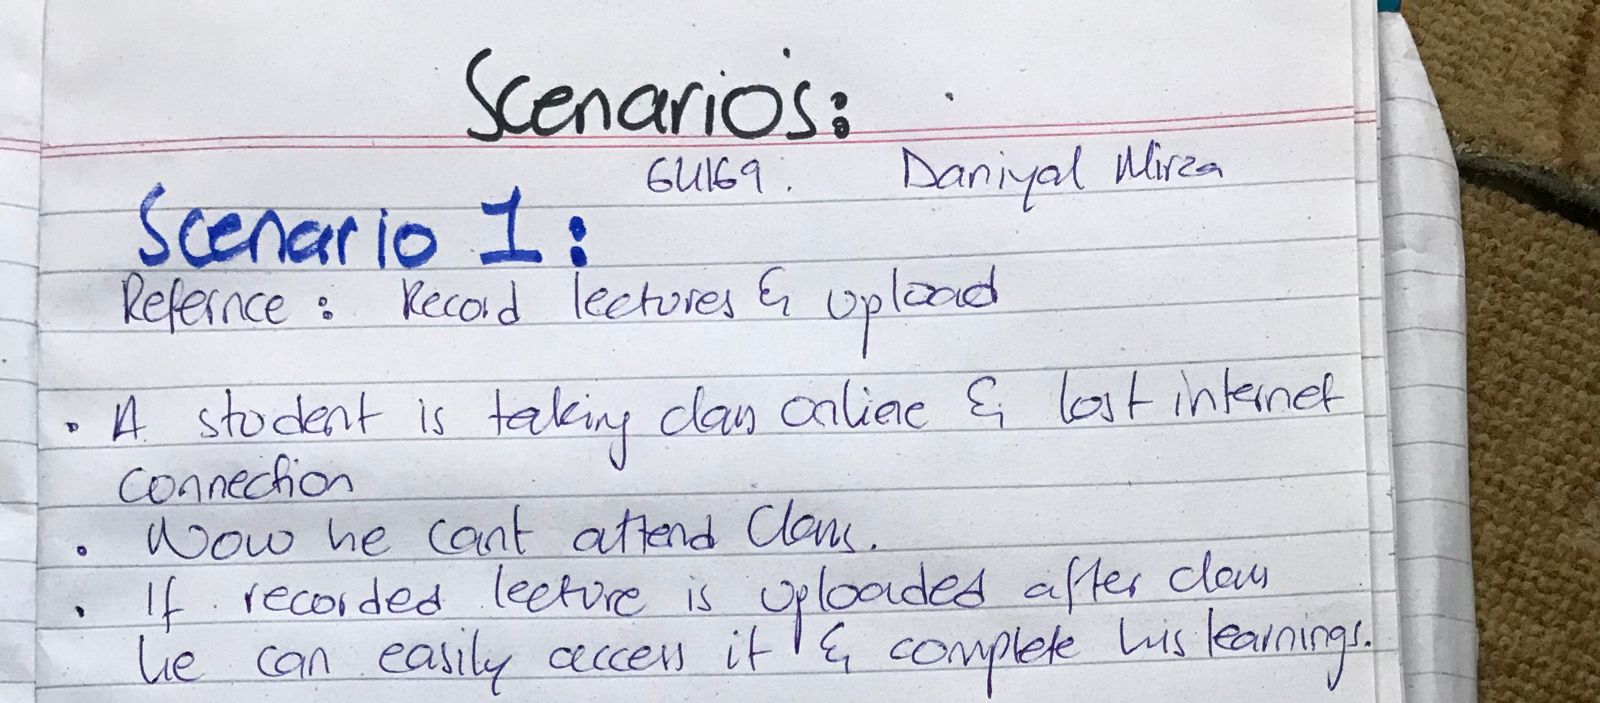 Scenarios:
64169. Daniyal Mirza
Scenario 1:
Refernce: Record lectures & upload
• A student is taking class online & lost internet
connection
• Now he cant attend Class.
• If recorded lecture is uploaded after class
he can easily access it & complete his learnings.